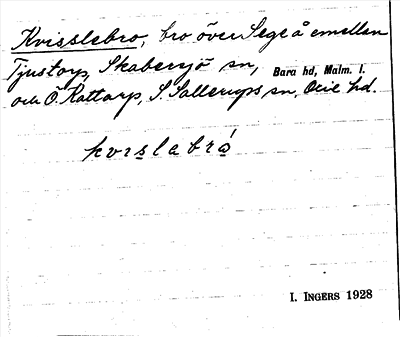 Kvisslebro, bro över Sege å emellan
Tjustorp, Skabersjö sn, Bara hd, Malm. l.
och Ö. Kattarp, S. Sallerups sn, Oxie hd.
kvislabró
I. INGERS 1928